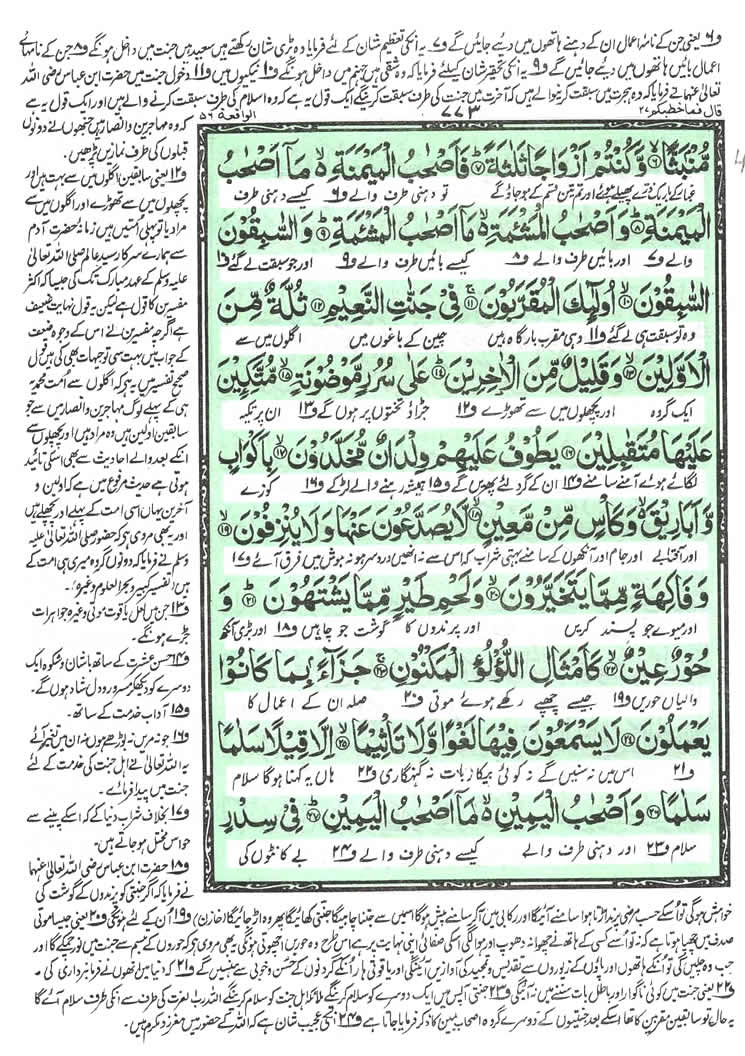 و۶ یعنی جن کے نامۂ اعمال ان کے دہنے ہاتھوں میں دیے جائیں گے و۷ یہ انکی تعظیم شان کے لئے فرمایا وہ بڑی شان رکھتے ہیں سعید ہیں جنت میں داخل ہونگے و۸ جن کے نامہائے
اعمال بائیں ہاتھوں میں دیے جائیں گے و۹ یہ انکی تحقیر شان کیلئے فرمایا کہ وہ شقی ہیں جہنم میں داخل ہونگے و۱۰ نیکیوں میں و۱۱ دخول جنت میں حضرت ابن عباس رضی اللہ
تعالیٰ عنہما نے فرمایا کہ وہ ہجرت میں سبقت کرنیوالے ہیں کہ آخرت میں جنت کی طرف سبقت کرینگے ایک قول یہ ہے کہ وہ اسلام کی طرف سبقت کرنے والے ہیں اور ایک قول یہ ہے
قال فما خطبکم ۲۷ ۷۷۳ الواقعة ۵۶
مُّنۢبَثًّا ۶ وَّكُنْتُمْ اَزْوَاجًا ثَلٰثَةً ۷ فَاَصْحٰبُ الْمَيْمَنَةِ مَاۤ اَصْحٰبُ
غبار کے باریک ذرے پھیلے ہوئے اور تم تین قسم کے ہو جاؤ گے تو دہنی طرف والے و۶ کیسے دہنی طرف
الْمَيْمَنَةِ ۸ وَاَصْحٰبُ الْمَشْـَٔمَةِ مَاۤ اَصْحٰبُ الْمَشْـَٔمَةِ ۹ وَالسّٰبِقُوْنَ
والے و۷ اور بائیں طرف والے و۸ کیسے بائیں طرف والے و۹ اور جو سبقت لے گئے و۱۰
السّٰبِقُوْنَ ۱۰ اُولٰٓئِكَ الْمُقَرَّبُوْنَ ۱۱ فِيْ جَنّٰتِ النَّعِيْمِ ۱۲ ثُلَّةٌ مِّنَ
وہ تو سبقت ہی لے گئے و۱۱ وہی مقرب بارگاہ ہیں چین کے باغوں میں اگلوں میں سے
الْاَوَّلِيْنَ ۱۳ وَقَلِيْلٌ مِّنَ الْاٰخِرِيْنَ ۱۴ عَلٰى سُرُرٍ مَّوْضُوْنَةٍ ۱۵ مُّتَّكِـِٕيْنَ
ایک گروہ اور پچھلوں میں سے تھوڑے و۱۲ جڑاؤ تختوں پر ہوں گے و۱۳ ان پر تکیہ
عَلَيْهَا مُتَقٰبِلِيْنَ ۱۶ يَطُوْفُ عَلَيْهِمْ وِلْدَانٌ مُّخَلَّدُوْنَ ۱۷ بِاَكْوَابٍ
لگائے ہوئے آمنے سامنے و۱۴ ان کے گرد لئے پھریں گے و۱۵ ہمیشہ رہنے والے لڑکے و۱۶ کوزے
وَّاَبَارِيْقَ وَكَاْسٍ مِّنْ مَّعِيْنٍ ۱۸ لَّا يُصَدَّعُوْنَ عَنْهَا وَلَا يُنْزِفُوْنَ ۱۹
اور آفتابے اور جام اور آنکھوں کے سامنے بہتی شراب کہ اس سے نہ انھیں درد سر ہو نہ ہوش میں فرق آئے و۱۷
وَفَاكِهَةٍ مِّمَّا يَتَخَيَّرُوْنَ ۲۰ وَلَحْمِ طَيْرٍ مِّمَّا يَشْتَهُوْنَ ۲۱ وَ
اور میوے جو پسند کریں اور پرندوں کا گوشت جو چاہیں و۱۸ اور بڑی آنکھ
حُوْرٌ عِيْنٌ ۲۲ كَاَمْثَالِ اللُّؤْلُؤِ الْمَكْنُوْنِ ۲۳ جَزَآءًۢ بِمَا كَانُوْا
والیاں حوریں و۱۹ جیسے چھپے رکھے ہوئے موتی و۲۰ صلہ ان کے اعمال کا
يَعْمَلُوْنَ ۲۴ لَا يَسْمَعُوْنَ فِيْهَا لَغْوًا وَّلَا تَاْثِيْمًا ۲۵ اِلَّا قِيْلًا سَلٰمًا
و۲۱ اس میں نہ سنیں گے نہ کوئی بیکار بات نہ گنہگاری و۲۲ ہاں یہ کہنا ہوگا سلام
سَلٰمًا ۲۶ وَاَصْحٰبُ الْيَمِيْنِ مَاۤ اَصْحٰبُ الْيَمِيْنِ ۲۷ فِيْ سِدْرٍ
سلام و۲۳ اور دہنی طرف والے کیسے دہنی طرف والے و۲۴ بے کانٹوں کی
کہ وہ مہاجرین وانصار ہیں جنھوں نے دونوں
قبلوں کی طرف نمازیں پڑھیں۔
و۱۲ یعنی سابقین اگلوں میں سے بہت ہیں اور
پچھلوں میں سے تھوڑے اور اگلوں میں سے
مراد یا تو پہلی امتیں ہیں زمانۂ حضرت آدم
سے ہمارے سرکار سید عالم صلی اللہ تعالیٰ
علیہ وسلم کے عہد مبارک تک کی جیسا کہ اکثر
مفسرین کا قول ہے لیکن یہ قول نہایت ضعیف
ہے اگرچہ مفسرین نے اس کے وجوہ ضعف
کے جواب میں بہت سی توجیہات بھی کی ہیں قول
صحیح تفسیر میں یہ ہے کہ اگلوں سے امت محمدیہ
ہی کے پہلے لوگ مہاجرین وانصار میں سے جو
سابقین اولین ہیں وہ مراد ہیں اور پچھلوں سے
انکے بعد والے احادیث سے بھی اسکی تائید
ہوتی ہے حدیث مرفوع میں ہے کہ اولین و
آخرین یہاں اسی امت کے پہلے اور پچھلے ہیں
اور یہ بھی مروی ہے کہ حضور صلی اللہ تعالیٰ علیہ
وسلم نے فرمایا کہ دونوں گروہ میری ہی امت کے
ہیں (تفسیر کبیر و بحر العلوم وغیرہ)۔
و۱۳ جن میں لعل یاقوت موتی وغیرہ جواہرات
جڑے ہونگے۔
و۱۴ حسن عشرت کے ساتھ باشان وشکوہ ایک
دوسرے کو دیکھ کر مسرور و دل شاد ہوں گے۔
و۱۵ آداب خدمت کے ساتھ۔
و۱۶ جو نہ مریں نہ بوڑھے ہوں نہ ان میں تغیر آئے
یہ اللہ تعالیٰ نے اہل جنت کی خدمت کے لئے
جنت میں پیدا فرمائے۔
و۱۷ بخلاف شراب دنیا کے کہ اسکے پینے سے
حواس مختل ہو جاتے ہیں۔
و۱۸ حضرت ابن عباس رضی اللہ تعالیٰ عنہما
نے فرمایا کہ اگر جنتی کو پرندوں کے گوشت کی
خواہش ہوگی تو اسکے حسب مرضی پرند اڑتا ہوا سامنے آئیگا اور رکابی میں آکر سامنے پیش ہوگا اسمیں سے جتنا چاہیگا جنتی کھائیگا پھر وہ اڑ جائیگا (خازن) و۱۹ اُن کے لئے ہونگی و۲۰ یعنی جیسا موتی
صدف میں چھپا ہوتا ہے کہ نہ تو اُسے کسی کے ہاتھ نے چھوا نہ دھوپ اور ہوا لگی اسکی صفائی اپنی نہایت پر ہے اس طرح وہ حوریں اچھوتی ہونگی یہ بھی مروی ہے کہ حوروں کے تبسم سے جنت میں نور چمکے گا اور
جب وہ چلیں گی تو اُنکے ہاتھوں اور پاؤں کے زیوروں سے تقدیس وتمجید کی آوازیں آئینگی اور یاقوتی ہار اُنکے گردنوں کے حسن وخوبی سے ہنسیں گے و۲۱ کہ دنیا میں انھوں نے فرمانبرداری کی۔
و۲۲ یعنی جنت میں کوئی ناگوار اور باطل بات سننے میں نہ آئیگی و۲۳ جنتی آپس میں ایک دوسرے کو سلام کرینگے ملائکہ اہل جنت کو سلام کرینگے اللہ رب العزت کی طرف سے انکی طرف سلام آئے گا
یہ حال تو سابقین مقربین کا تھا اسکے بعد جنتیوں کے دوسرے گروہ اصحاب یمین کا ذکر فرمایا جاتا ہے و۲۴ انکی عجیب شان ہے کہ اللہ کے حضور میں معزز ومکرم ہیں۔